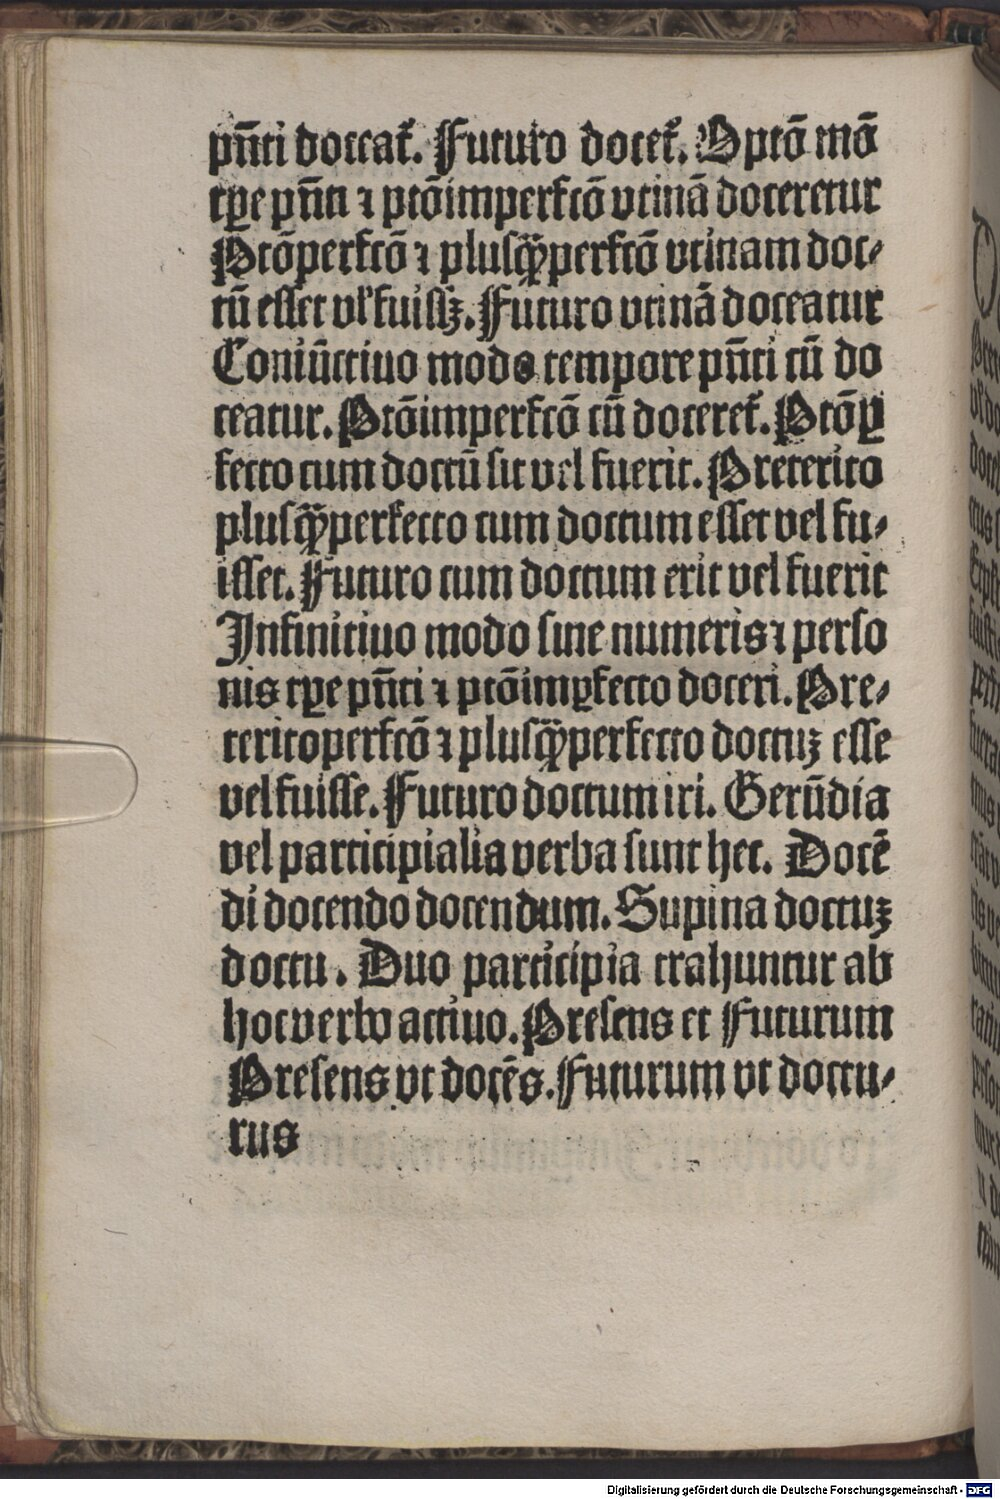 pn̄ti doceat᷑. Futuro docet᷑. Optō mō
tꝑe pn̄ti ⁊ ptōimperfctō vtinā doceretur
Ptōperfctō ⁊ plusqꝫ̄perfctō vtinam doc⸗
tū esset vl̓ fuissꝫ. Futuro vtinā doceatur
Coniūctiuo modo tempore pn̄ti cū do
ceatur. Ptōimperfctō cū doceret᷑. Ptōꝑ
fecto cum doctū sit vel fuerit. Preterito
plusqꝫ̄perfecto cum doctum esset vel fu⸗
isset. Futuro cum doctum erit vel fuerit
Infinitiuo modo sine numeris ⁊ perso
nis tꝑe pn̄ti ⁊ ptōimꝑfecto doceri. Pre⸗
teritoperfctō ⁊ plusqꝫ̄perfecto doctuꝫ esse
vel fuisse. Futuro doctum iri. Gerūdia
vel participialia verba sunt hec. Docē
di docendo docendum. Supina doctuꝫ
doctu. Duo participia trahuntur ab
hoc verbo actiuo. Presens et Futurum
Presens vt docēs. Futurum vt doctu⸗
rus
Digitalisierung gefördert durch die Deutsche Forschungsgemeinschaft - DFG